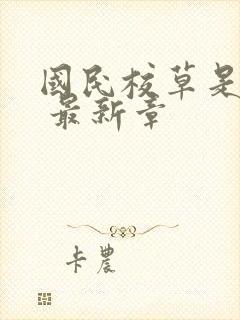 國民校草是
最新章
卡農